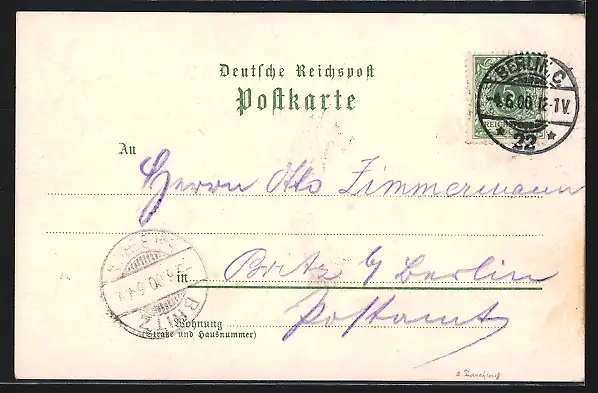 Deutsche Reichspost
Postkarte
BERLIN, C.
6.00 12-1V.
* 22 *
REICHSPOST
An
Herrn Otto Zimmermann
in Britz b/ Berlin
Postamt
BRITZ
Wohnung
(Straße und Hausnummer)